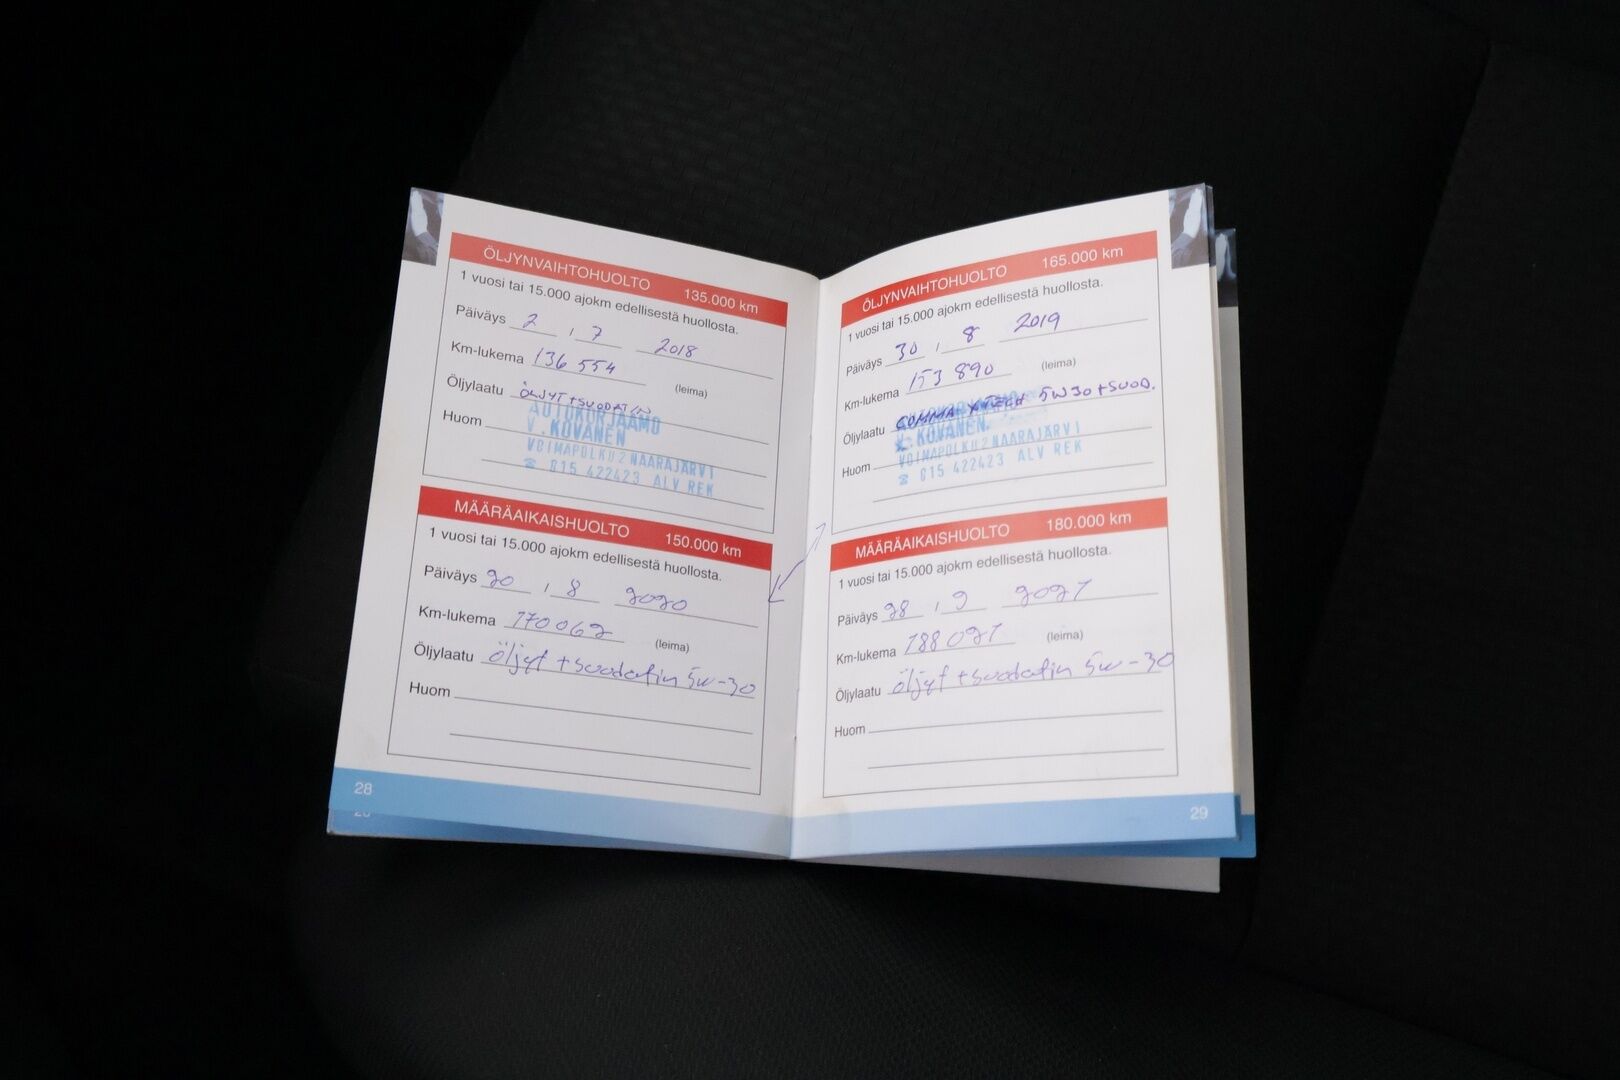 ÖLJYNVAIHTOHUOLTO 135.000 km
1 vuosi tai 15.000 ajokm edellisestä huollosta.
Päiväys 2 , 7 2018
Km-lukema 136 554
(leima)
Öljylaatu ÖLJYT+SUODATIN
AUTOKORJAAMO
Huom
V. KOVANEN
VOIMAPOLKU 2 NAARAJÄRVI
☎ 015 422423 ALV REK
MÄÄRÄAIKAISHUOLTO 150.000 km
1 vuosi tai 15.000 ajokm edellisestä huollosta.
Päiväys 20 , 8 2020
Km-lukema 170062
(leima)
Öljylaatu öljyt + suodatin 5w-30
Huom
28
ÖLJYNVAIHTOHUOLTO 165.000 km
1 vuosi tai 15.000 ajokm edellisestä huollosta.
Päiväys 30 , 8 2019
Km-lukema 153 890
(leima)
Öljylaatu COMMA XTECH 5W30+SUOD.
AUTOKORJAAMO
V. KOVANEN
Huom
VOIMAPOLKU 2 NAARAJÄRVI
☎ 015 422423 ALV REK
MÄÄRÄAIKAISHUOLTO 180.000 km
1 vuosi tai 15.000 ajokm edellisestä huollosta.
Päiväys 28 , 9 2021
Km-lukema 188021
(leima)
Öljylaatu öljyt + suodatin 5w-30
Huom
29